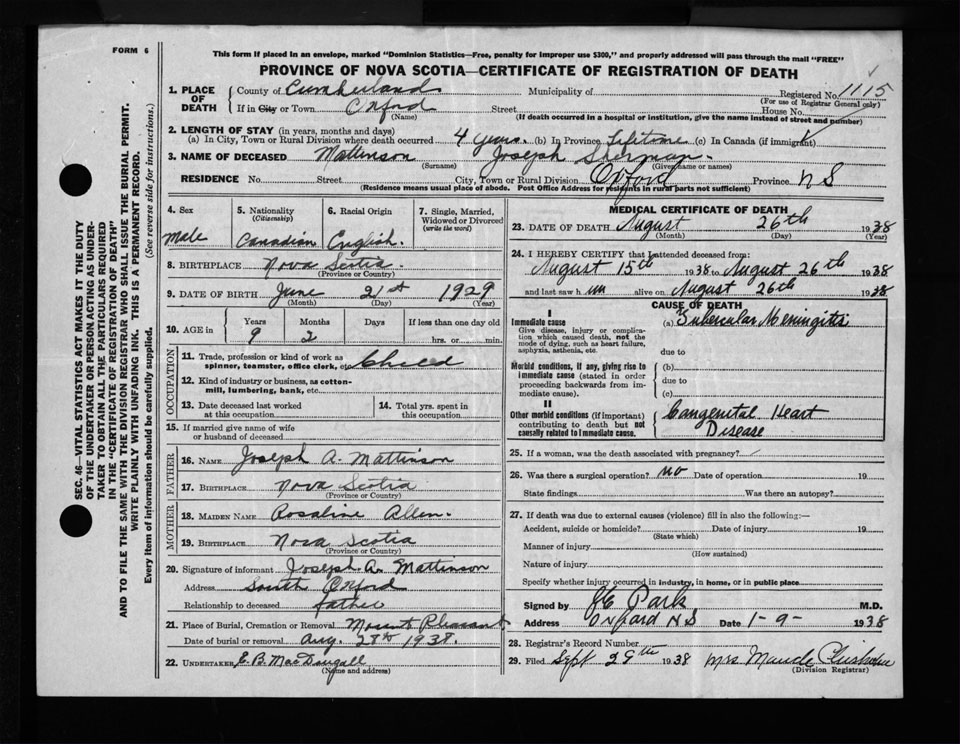 FORM 6
This form if placed in an envelope, marked "Dominion Statistics—Free, penalty for improper use $300," and properly addressed will pass through the mail "FREE"
PROVINCE OF NOVA SCOTIA—CERTIFICATE OF REGISTRATION OF DEATH
1. PLACE OF DEATH { County of Cumberland Municipality of Registered No. 1115
(For use of Registrar General only)
If in City or Town Oxford Street House No.
(Name) (If death occurred in a hospital or institution, give the name instead of street and number)
2. LENGTH OF STAY (in years, months and days)
(a) In City, Town or Rural Division where death occurred 4 years. (b) In Province Lifetime (c) In Canada (if immigrant)
3. NAME OF DECEASED Mattinson Joseph Sherman.
(Surname) (Given name or names)
RESIDENCE No. Street City, Town or Rural Division Oxford Province N S
(Residence means usual place of abode. Post Office Address for residents in rural parts not sufficient)
4. Sex 5. Nationality (Citizenship) 6. Racial Origin 7. Single, Married, Widowed or Divorced (write the word)
Male Canadian English.
8. BIRTHPLACE Nova Scotia
(Province or Country)
9. DATE OF BIRTH June 21st 1929
(Month) (Day) (Year)
10. AGE in { Years Months Days If less than one day old
9 2 hrs. or min.
OCCUPATION
11. Trade, profession or kind of work as spinner, teamster, office clerk, etc. Child
12. Kind of industry or business, as cotton-mill, lumbering, bank, etc.
13. Date deceased last worked at this occupation 14. Total yrs. spent in this occupation
15. If married give name of wife or husband of deceased
FATHER
16. NAME Joseph A. Mattinson
17. BIRTHPLACE Nova Scotia
(Province or Country)
MOTHER
18. MAIDEN NAME Rosaline Allen.
19. BIRTHPLACE Nova Scotia
(Province or Country)
20. Signature of informant Joseph A. Mattinson
Address South Oxford
Relationship to deceased father
21. Place of Burial, Cremation or Removal Mount Pleasant
Date of burial or removal Aug. 28th 1938.
22. UNDERTAKER E. B. MacDougall
(Name and address)
MEDICAL CERTIFICATE OF DEATH
23. DATE OF DEATH August 26th 1938
(Month) (Day) (Year)
24. I HEREBY CERTIFY that I attended deceased from:
August 15th 1938 to August 26th 1938
and last saw h im alive on August 26th 1938
CAUSE OF DEATH
I
Immediate cause (a) Tubercular Meningitis
Give disease, injury or complication which caused death, not the mode of dying, such as heart failure, asphyxia, asthenia, etc.
due to
Morbid conditions, if any, giving rise to immediate cause (stated in order proceeding backwards from immediate cause). (b)
due to
(c)
II
Other morbid conditions (if important) contributing to death but not causally related to immediate cause. Congenital Heart
Disease
25. If a woman, was the death associated with pregnancy?
26. Was there a surgical operation? no Date of operation 19
State findings Was there an autopsy?
27. If death was due to external causes (violence) fill in also the following:—
Accident, suicide or homicide? Date of injury 19
(State which)
Manner of injury
(How sustained)
Nature of injury
Specify whether injury occurred in industry, in home, or in public place
Signed by J E Park M.D.
Address Oxford N S Date 1-9- 1938
28. Registrar's Record Number
29. Filed Sept 29th 1938 Mrs Maude Chisholm
(Division Registrar)
SEC. 46—VITAL STATISTICS ACT MAKES IT THE DUTY
OF THE UNDERTAKER OR PERSON ACTING AS UNDER-
TAKER TO OBTAIN ALL THE PARTICULARS REQUIRED
IN THE "CERTIFICATE OF REGISTRATION OF DEATH"
AND TO FILE THE SAME WITH THE DIVISION REGISTRAR WHO SHALL ISSUE THE BURIAL PERMIT.
WRITE PLAINLY WITH UNFADING INK. THIS IS A PERMANENT RECORD.
Every item of information should be carefully supplied. (See reverse side for instructions.)